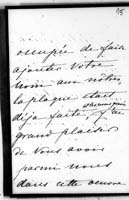 15
occupée de faire
ajouter votre
nom aux nôtres
la plaque était
déjà faite. J'ai
grand plaisir
de vous avoir
parmi nous
dans cette œuvre